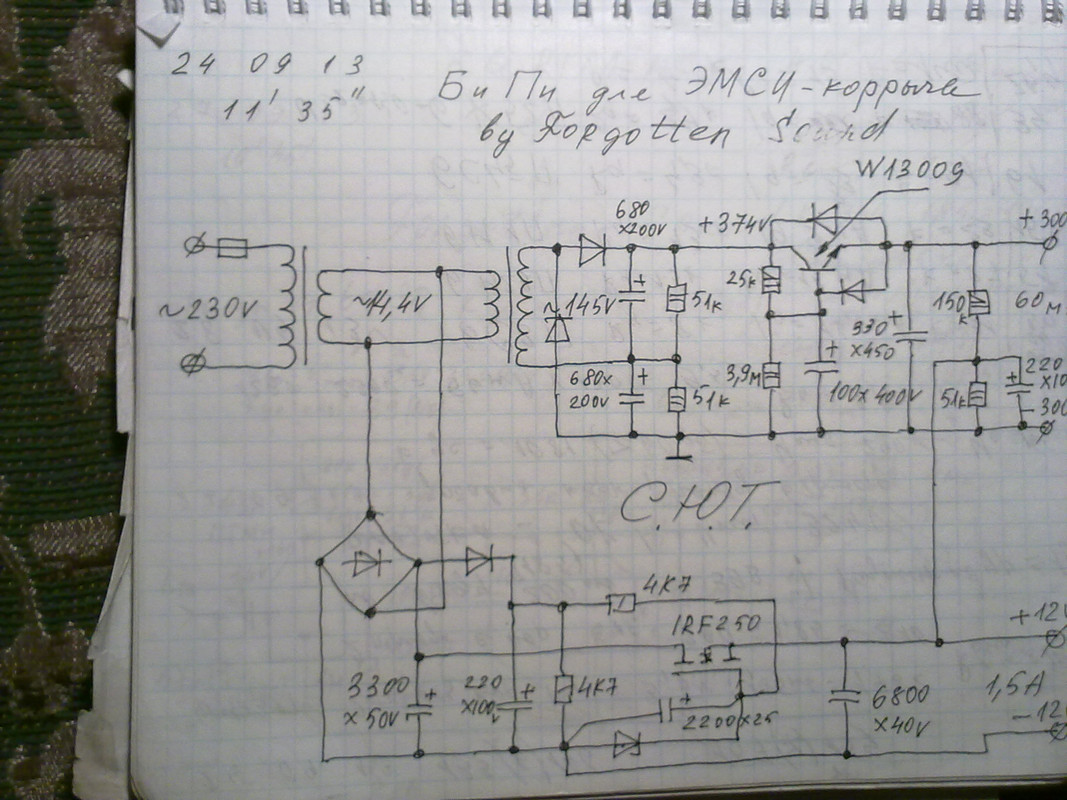 24 09 13
11' 35"
Би Пи для ЭМСИ-коррыча
by Forgotten Sound
W13009
680
×200V
+374V
+300
~230V
~14,4V
~145V
51k
25k
150
k
60м
330
×450
680×
200V
51k
3,9м
100×400V
51k
220
×10
-300
С.Ю.Т.
4К7
IRF250
+12V
3300
×50V
220
×100V
4К7
2200×25
6800
×40V
1,5A
-12V